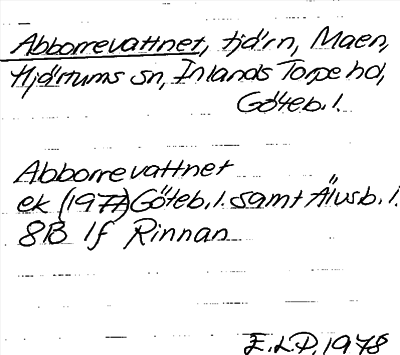 Abborrevattnet, tjärn, Maen,
Hjärtums sn, Inlands Torpe hd,
Göteb. l.
Abborrevattnet
ek (1977) Göteb. l. samt Älvsb. l.
8B 1f Rinnan
E.L.P. 1978